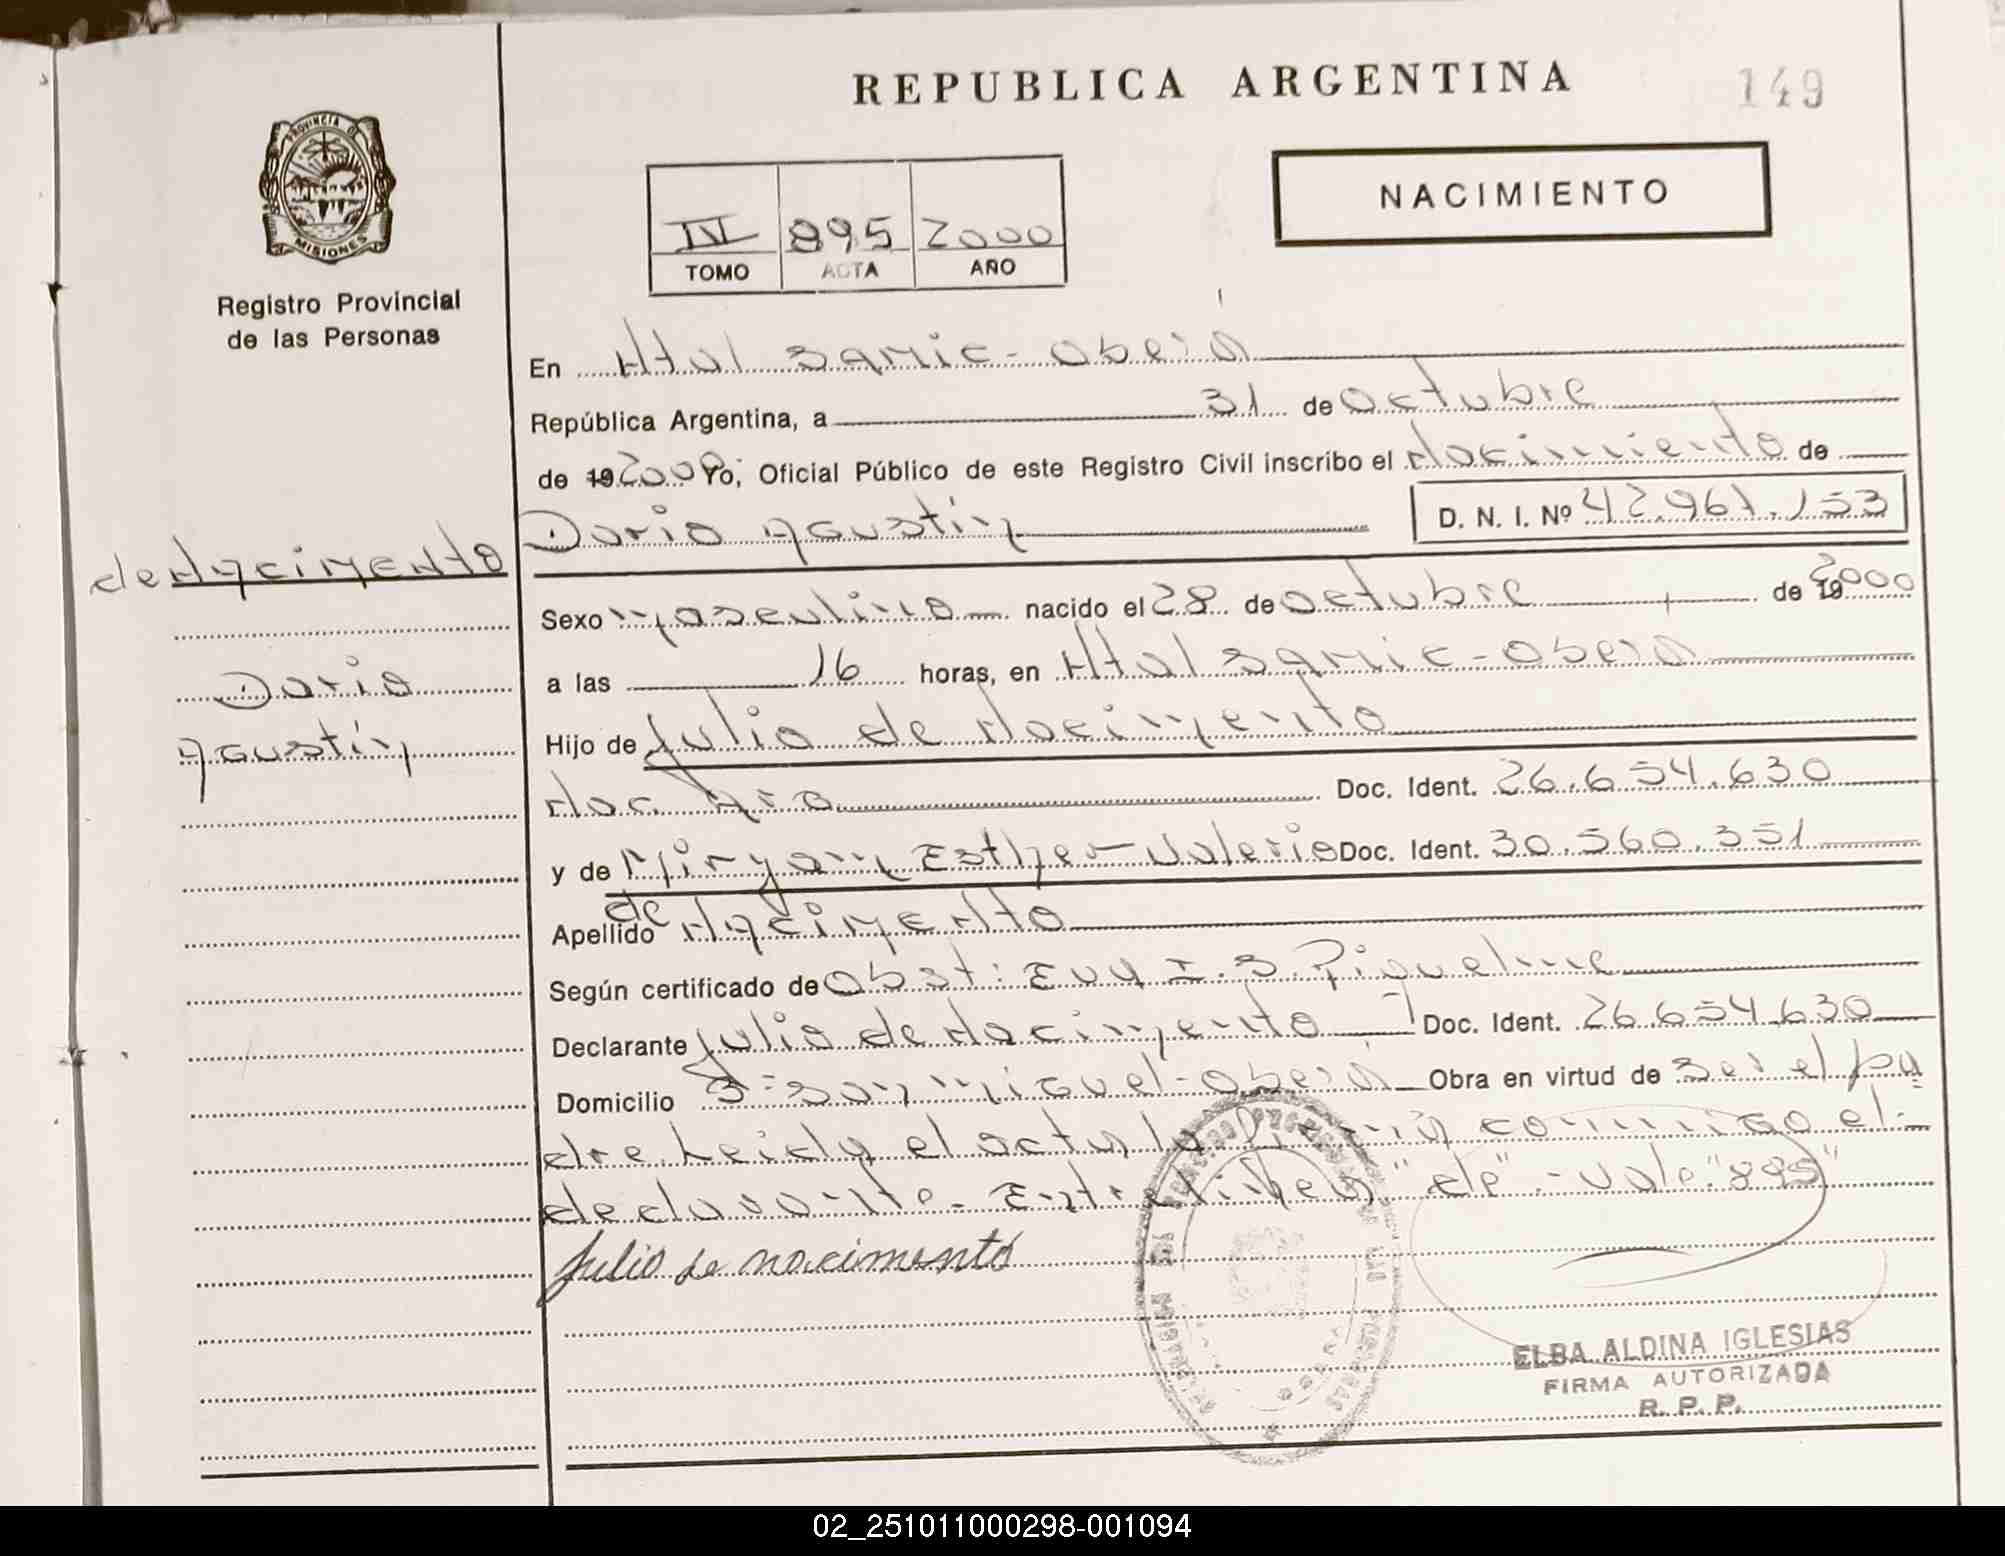 REPUBLICA ARGENTINA
149
PROVINCIA DE
MISIONES
Registro Provincial
de las Personas
NACIMIENTO
IV 895 2000
TOMO ACTA AÑO
En Htal Samic - Oberá
República Argentina, a 31 de Octubre
de 19 2000 Yo, Oficial Público de este Registro Civil inscribo el Nacimiento de
Dario Agustín D. N. I. Nº 42.961.153
de Nacimento
Dario
Agustín
Sexo Masculino nacido el 28 de Octubre de 19 2000
a las 16 horas, en Htal Samic - Oberá
Hijo de Julio de Nacimento
Nac. Arg. Doc. Ident. 26.654.630
y de Miryam Esther Valerio Doc. Ident. 30.560.351
de
Apellido Nacimento
Según certificado de Obst: Eva I. S. Piquelme
Declarante Julio de Nacimento Doc. Ident. 26.654.630
Domicilio Bº San Miguel - Oberá Obra en virtud de Ser el pa
dre. Leida el acta, la firmá conmigo el
declarante. Entrelinea "de" - Vale "895"
Julio de nacimento
ELBA ALDINA IGLESIAS
FIRMA AUTORIZADA
R. P. P.
02_251011000298-001094